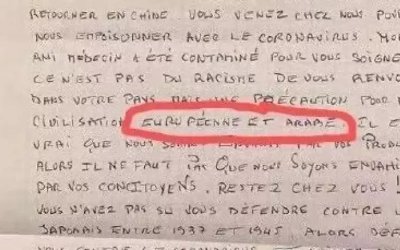 RETOURNER EN CHINE. VOUS VENEZ CHEZ NOUS POU
NOUS EMPOISONNER AVEC LE CORONAVIRUS. MO
AMI MEDECIN A ÉTÉ CONTAMINÉ POUR VOUS SOIGNE
CE N'EST PAS DU RACISME DE VOUS RENVO
DANS VOTRE PAYS MAIS UNE PRÉCAUTION POUR
CIVILISATION EUROPÉENNE ET ARABE IL E
VRAI QUE NOUS SOMMES PAR VOS PRODU
ALORS IL NE FAUT PAS QUE NOUS SOYONS ENVAHI
PAR VOS CONCITOYENS. RESTEZ CHEZ VOUS !
VOUS N'AVEZ PAS SU VOUS DÉFENDRE CONTRE L
JAPONAIS ENTRE 1937 ET 1945 ALORS DÉF